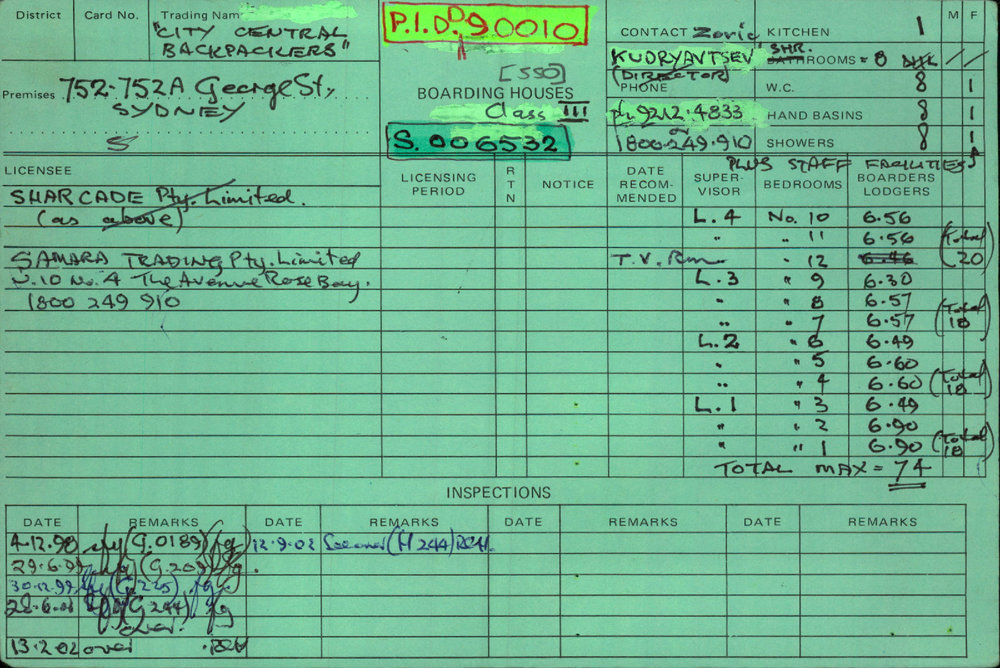 District Card No. Trading Name
"CITY CENTRAL
BACKPACKERS"
Premises 752-752A George St,
SYDNEY
S
P.I.D. 9.0010
[550]
BOARDING HOUSES
Class III
S. 006532
CONTACT Zoric
KUDRYAVTSEV
(DIRECTOR)
PHONE
ph. 9212.4833
1800.249.910
M F
KITCHEN 1
SHR. ROOMS = 8
W.C. 8 1
HAND BASINS 8 1
SHOWERS 8 1
PLUS STAFF FACILITIES
LICENSEE
LICENSING PERIOD
RTN
NOTICE
DATE RECOM-MENDED
SUPER-VISOR
BEDROOMS
BOARDERS LODGERS
SHARCADE Pty. Limited.
(as above)
SAMARA TRADING Pty. Limited
U.10 No. 4 The Avenue Rose Bay.
1800 249 910
L.4 No. 10 6.56
" " 11 6.56 (Total
T.V. Rm " 12 6.46 20)
L.3 " 9 6.30
" " 8 6.57 (Total
" " 7 6.57 18)
L.2 " 6 6.49
" " 5 6.60
" " 4 6.60 (Total 18)
L.1 " 3 6.49
" " 2 6.90 (Total
" " 1 6.90 18)
TOTAL MAX = 74
INSPECTIONS
DATE REMARKS DATE REMARKS DATE REMARKS DATE REMARKS
4.12.98 (G.0189) 12.9.02 See over (H 244)
29.6.99
30.12.99 (G.225)
(G.244)
over.
13.2.02 over